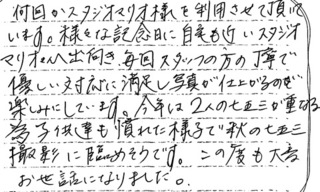 何回かスタジオマリオ様を利用させて頂いて
います。様々な記念日に自宅も近いスタジオ
マリオさんへ出向き、毎回スタッフの方の丁寧で
優しい対応に満足し写真が仕上がるのを
楽しみにしています。今年は2人の七五三が重なる
為子供達も慣れた様子で秋の七五三
撮影に臨めそうです。この度も大変
お世話になりました。